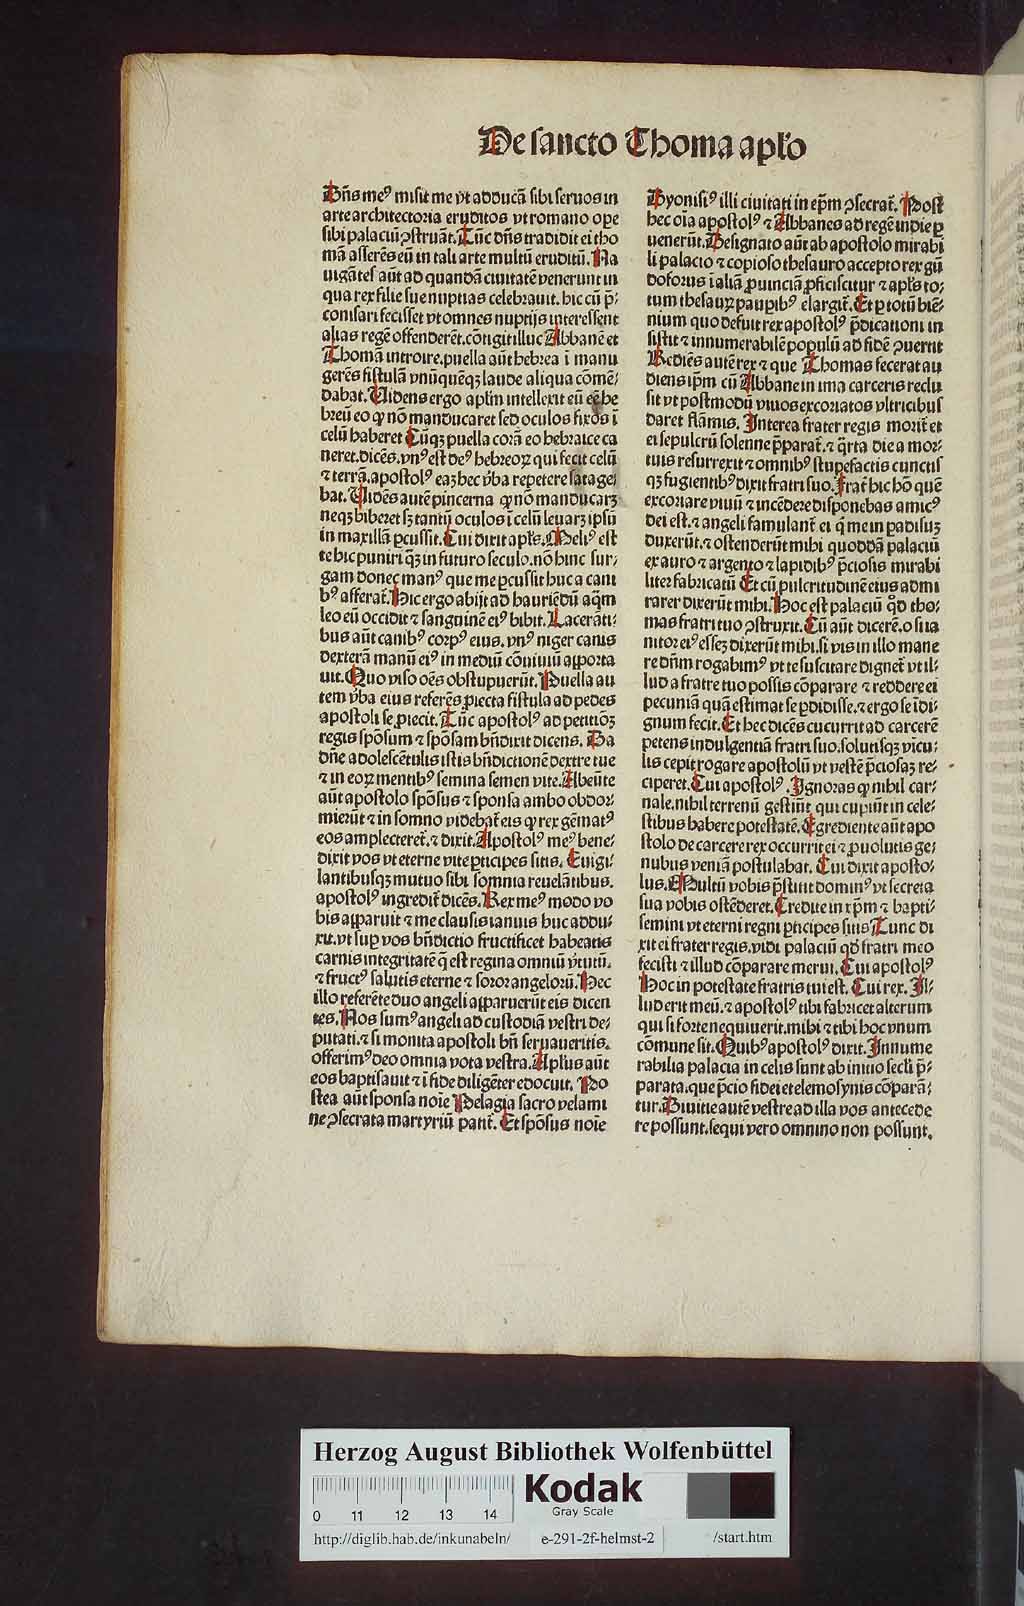 De sancto Thoma apl'o
Dn̄s meꝰ misit me vt adducā sibi seruos in
arte architectoria eruditos vt romano ope
sibi palaciū ꝯstruāt. Tūc dn̄s tradidit ei tho
mā asserēs eū in tali arte multū eruditū. Na
uigātes aūt ad quandā ciuitatē venerunt in
qua rex filie sue nuptias celebrauit. hic cū p̄-
conisari fecisset vt omnes nuptijs interessent
alias regē offenderēt. cōtigit illuc Abbanē et
Thomā introire. puella aūt hebrea ī manu
gerēs fistulā vnūquēqꝫ laude aliqua cōmē-
dabat. Uidens ergo aplm̄ intellexit eū eē he
breū eo ꝙ nō manducaret sed oculos fixos ī
celū haberet Cūqꝫ puella corā eo hebraice ca
neret. dicēs. vnꝰ est deꝰ hebreoꝝ qui fecit celū
⁊ terrā. apostolꝰ eaꝫ hec v̄ba repetere satage
bat. Uidēs autē pincerna ꝙ nō manducarꝫ
neqꝫ biberet sꝫ tantū oculos ī celū leuarꝫ ipsū
in maxillā ꝑcussit. Cui dixit apl's. Meliꝰ est
te hic puniri qꝫ in futuro seculo. nō hinc sur-
gam donec manꝰ que me ꝑcussit huc a cani
bꝰ afferat̄. Hic ergo abijt ad hauriēdū aq̄m
leo eū occidit ⁊ sanguinē eiꝰ bibit. Lacerati-
bus aūt canibꝰ corpꝰ eius. vnꝰ niger canis
dexterā manū eiꝰ in mediū cōuiuiū apporta
uit. Quo viso oēs obstupuerūt. Puella au
tem v̄ba eius referēs proiecta fistula ad pedes
apostoli se proiecit. Tūc apostolꝰ ad petitiōꝫ
regis spōsum ⁊ spōsam bn̄dixit dicens. Da
dn̄e adolescētulis istis bn̄dictionē dextre tue
⁊ in eoꝝ mentibꝰ semina semen vite. Abeūte
aūt apostolo spōsus ⁊ sponsa ambo obdor-
mierūt ⁊ in somno videbat̄ eis ꝙ rex gēmatꝰ
eos amplecteret̄. ⁊ dixit. Apostolꝰ meꝰ bene-
dixit vos vt eterne vite ꝑticipes sitis. Euigi-
lantibusqꝫ mutuo sibi somnia reuelātibus.
apostolꝰ ingredit̄ dicēs. Rex meꝰ modo vo
bis apparuit ⁊ me clausis ianuis huc addu-
xit. vt suꝑ vos bn̄dictio fructificet habeatis
carnis integritatē q̄ est regina omniū v̄tutū.
⁊ fructꝰ salutis eterne ⁊ soror angelorū. Hec
illo referēte duo angeli apparuerūt eis dicen
tes. Nos sumꝰ angeli ad custodiā vestri de-
putati. ⁊ si monita apostoli bn̄ seruaueritis.
offerimꝰ deo omnia vota vestra. Apl'us aūt
eos baptisauit ⁊ ī fide diligēter edocuit. Po
stea aūt sponsa noīe Pelagia sacro velami
ne ꝯsecrata martyriū patit̄. Et spōsus noīe
Dyonisiꝰ illi ciuitati in ep̄m ꝯsecrat̄. Post
hec oīa apostolꝰ ⁊ Abbanes ad regē indie ꝑ
uenerūt. Designato aūt ab apostolo mirabi
li palacio ⁊ copioso thesauro accepto rex gū
doforus ī aliā prouinciā proficiscitur ⁊ apl's to-
tum thesauꝝ pauꝑibꝰ elargit̄. Et ꝑ totū biē-
nium quo defuit rex apostolꝰ p̄dicationi in
sistit ⁊ innumerabilē populū ad fidē ꝯuertit
Rediēs autē rex ⁊ que Thomas fecerat au
diens ip̄m cū Abbane in ima carceris reclu
sit vt postmodū viuos excoriatos vltricibus
daret flāmis. Interea frater regis morit̄ et
ei sepulcrū solenne p̄parat̄. ⁊ q̄rta die a mor-
tuis resurrexit ⁊ omnibꝰ stupefactis cunctis
qꝫ fugientibꝰ dixit fratri suo. Frat̄ hic hō quē
excoriare viuū ⁊ incēdere disponebas amicꝰ
dei est. ⁊ angeli famulant̄ ei q̄ me in padisuꝫ
duxerūt. ⁊ ostenderūt mihi quoddā palaciū
ex auro ⁊ argento ⁊ lapidibꝰ p̄ciosis mirabi
liter fabricatū Et cū pulcritudinē eius admi
rarer dixerūt mihi. Hoc est palaciū qd̄ tho-
mas fratri tuo ꝯstruxit. Cū aūt dicerē. o si ia
nitor eiꝰ esseꝫ dixerūt mihi. si vis in illo mane
re dn̄m rogabimꝰ vt te suscitare dignet̄ vt il-
lud a fratre tuo possis cōparare ⁊ reddere ei
pecuniā quā estimat se ꝑdidisse. ⁊ ergo se īdi-
gnum fecit. Et hec dicēs cucurrit ad carcerē
petens indulgentiā fratri suo. solutisqꝫ vīcu-
lis cepit rogare apostolū vt vestē p̄ciosaꝫ re-
ciperet. Cui apostolꝰ. Ignoras ꝙ nihil car-
nale. nihil terrenū gestiūt qui cupiūt in cele-
stibus habere potestatē. Egrediente aūt apo
stolo de carcere rex occurrit ei ⁊ prouolutis ge-
nubus veniā postulabat. Cui dixit aposto-
lus. Multū vobis p̄stitit dominꝰ vt secreta
sua vobis ostēderet. Credite in xp̄m ⁊ bapti-
semini vt eterni regni ꝑticipes sitis Tunc di
xit ei frater regis. vidi palaciū qd̄ fratri meo
fecisti ⁊ illud cōparare merui. Cui apostolꝰ
Hoc in potestate fratris tui est. Cui rex. Il-
lud erit meū. ⁊ apostolꝰ tibi fabricet alterum
qui si forte nequiuerit. mihi ⁊ tibi hoc vnum
cōmune sit. Quibꝰ apostolꝰ dixit. Innume
rabilia palacia in celis sunt ab initio secl'i p̄-
parata. que p̄cio fidei et elemosynis cōparā-
tur. Diuitie autē vestre ad illa vos antecede
re possunt. sequi vero omnino non possunt.
Herzog August Bibliothek Wolfenbüttel
Kodak
Gray Scale
0 11 12 13 14
http://diglib.hab.de/inkunabeln/ e-291-2f-helmst-2 /start.htm